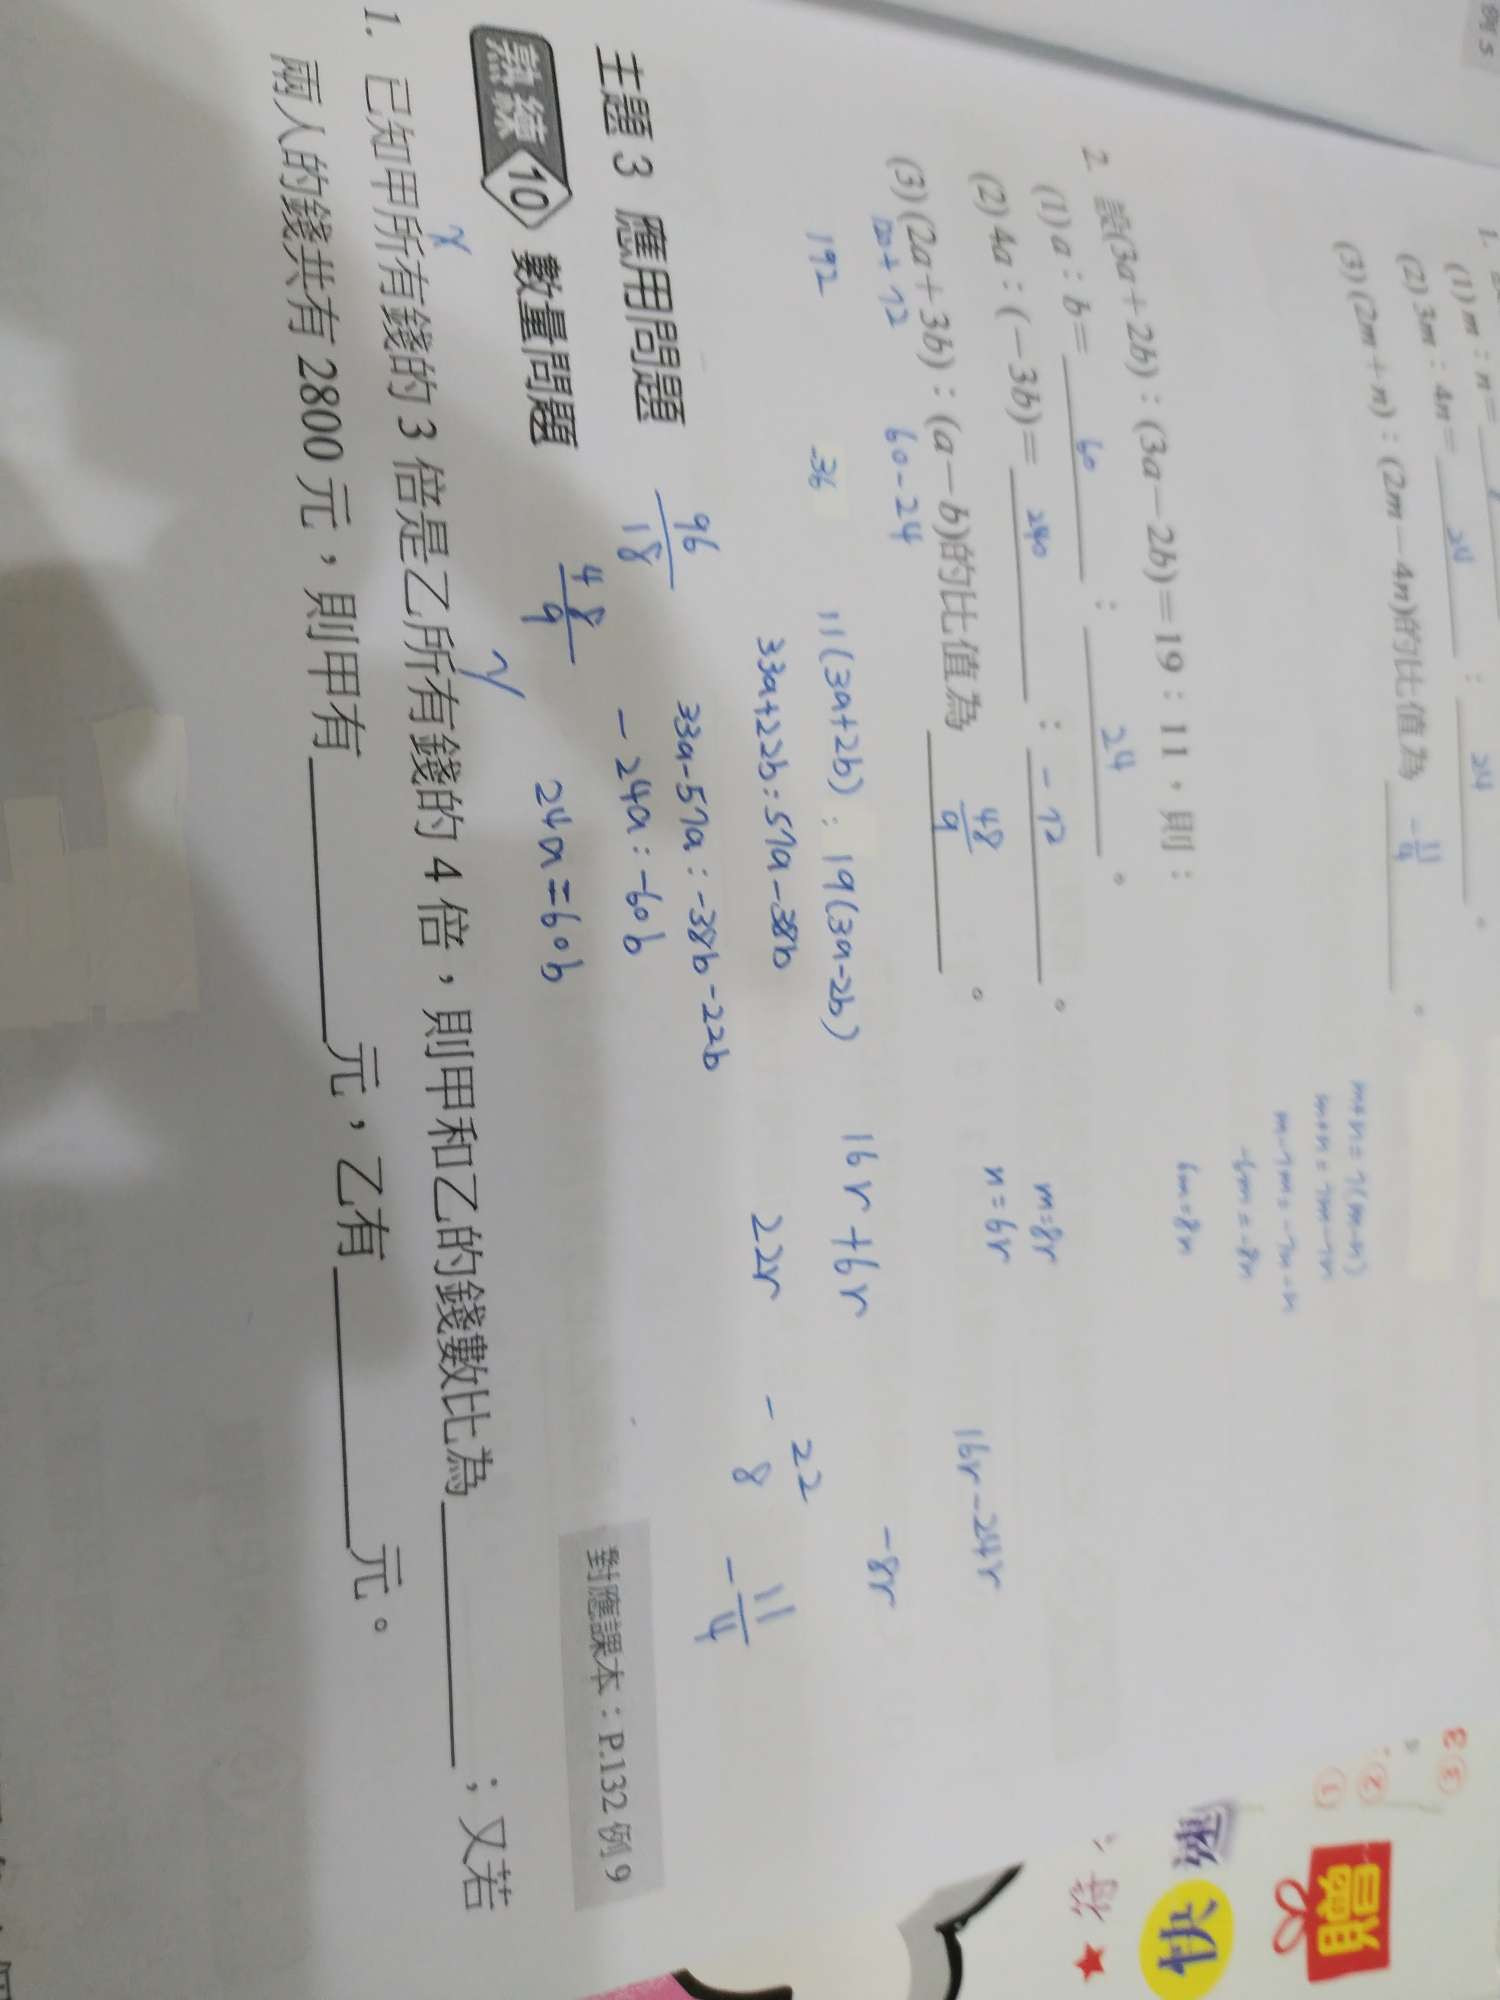 例5
1.
(1) m：n＝
(2) 3m：4n＝ 24 ： 24 。
(3) (2m＋n)：(2m－4n)的比值為 -11/4 。
m+n=7(m-n)
m+n=7m-7n
m-7m=-7n-n
-6m=-8n
6m=8n
m=8r
n=6r
2. 設(3a＋2b)：(3a－2b)＝19：11，則：
(1) a：b＝ 60 ： 24 。
(2) 4a：(－3b)＝ 240 ： -72 。
(3) (2a＋3b)：(a－b)的比值為 48/9 。
120+72 60-24
192 36
11(3a+2b):19(3a-2b)
33a+22b:57a-38b
33a-57a:-38b-22b
-24a:-60b
24a=60b
96/18
48/9
16r+6r
22r
16r-24r
-8r
-22/8
-11/4
主題3 應用問題
熟練10 數量問題
對應課本：P.132 例9
1. 已知甲所有錢的3倍是乙所有錢的4倍，則甲和乙的錢數比為＿＿＿；又若
兩人的錢共有2800元，則甲有＿＿＿元，乙有＿＿＿元。
x
y
贈
快速
★符
①
②
③